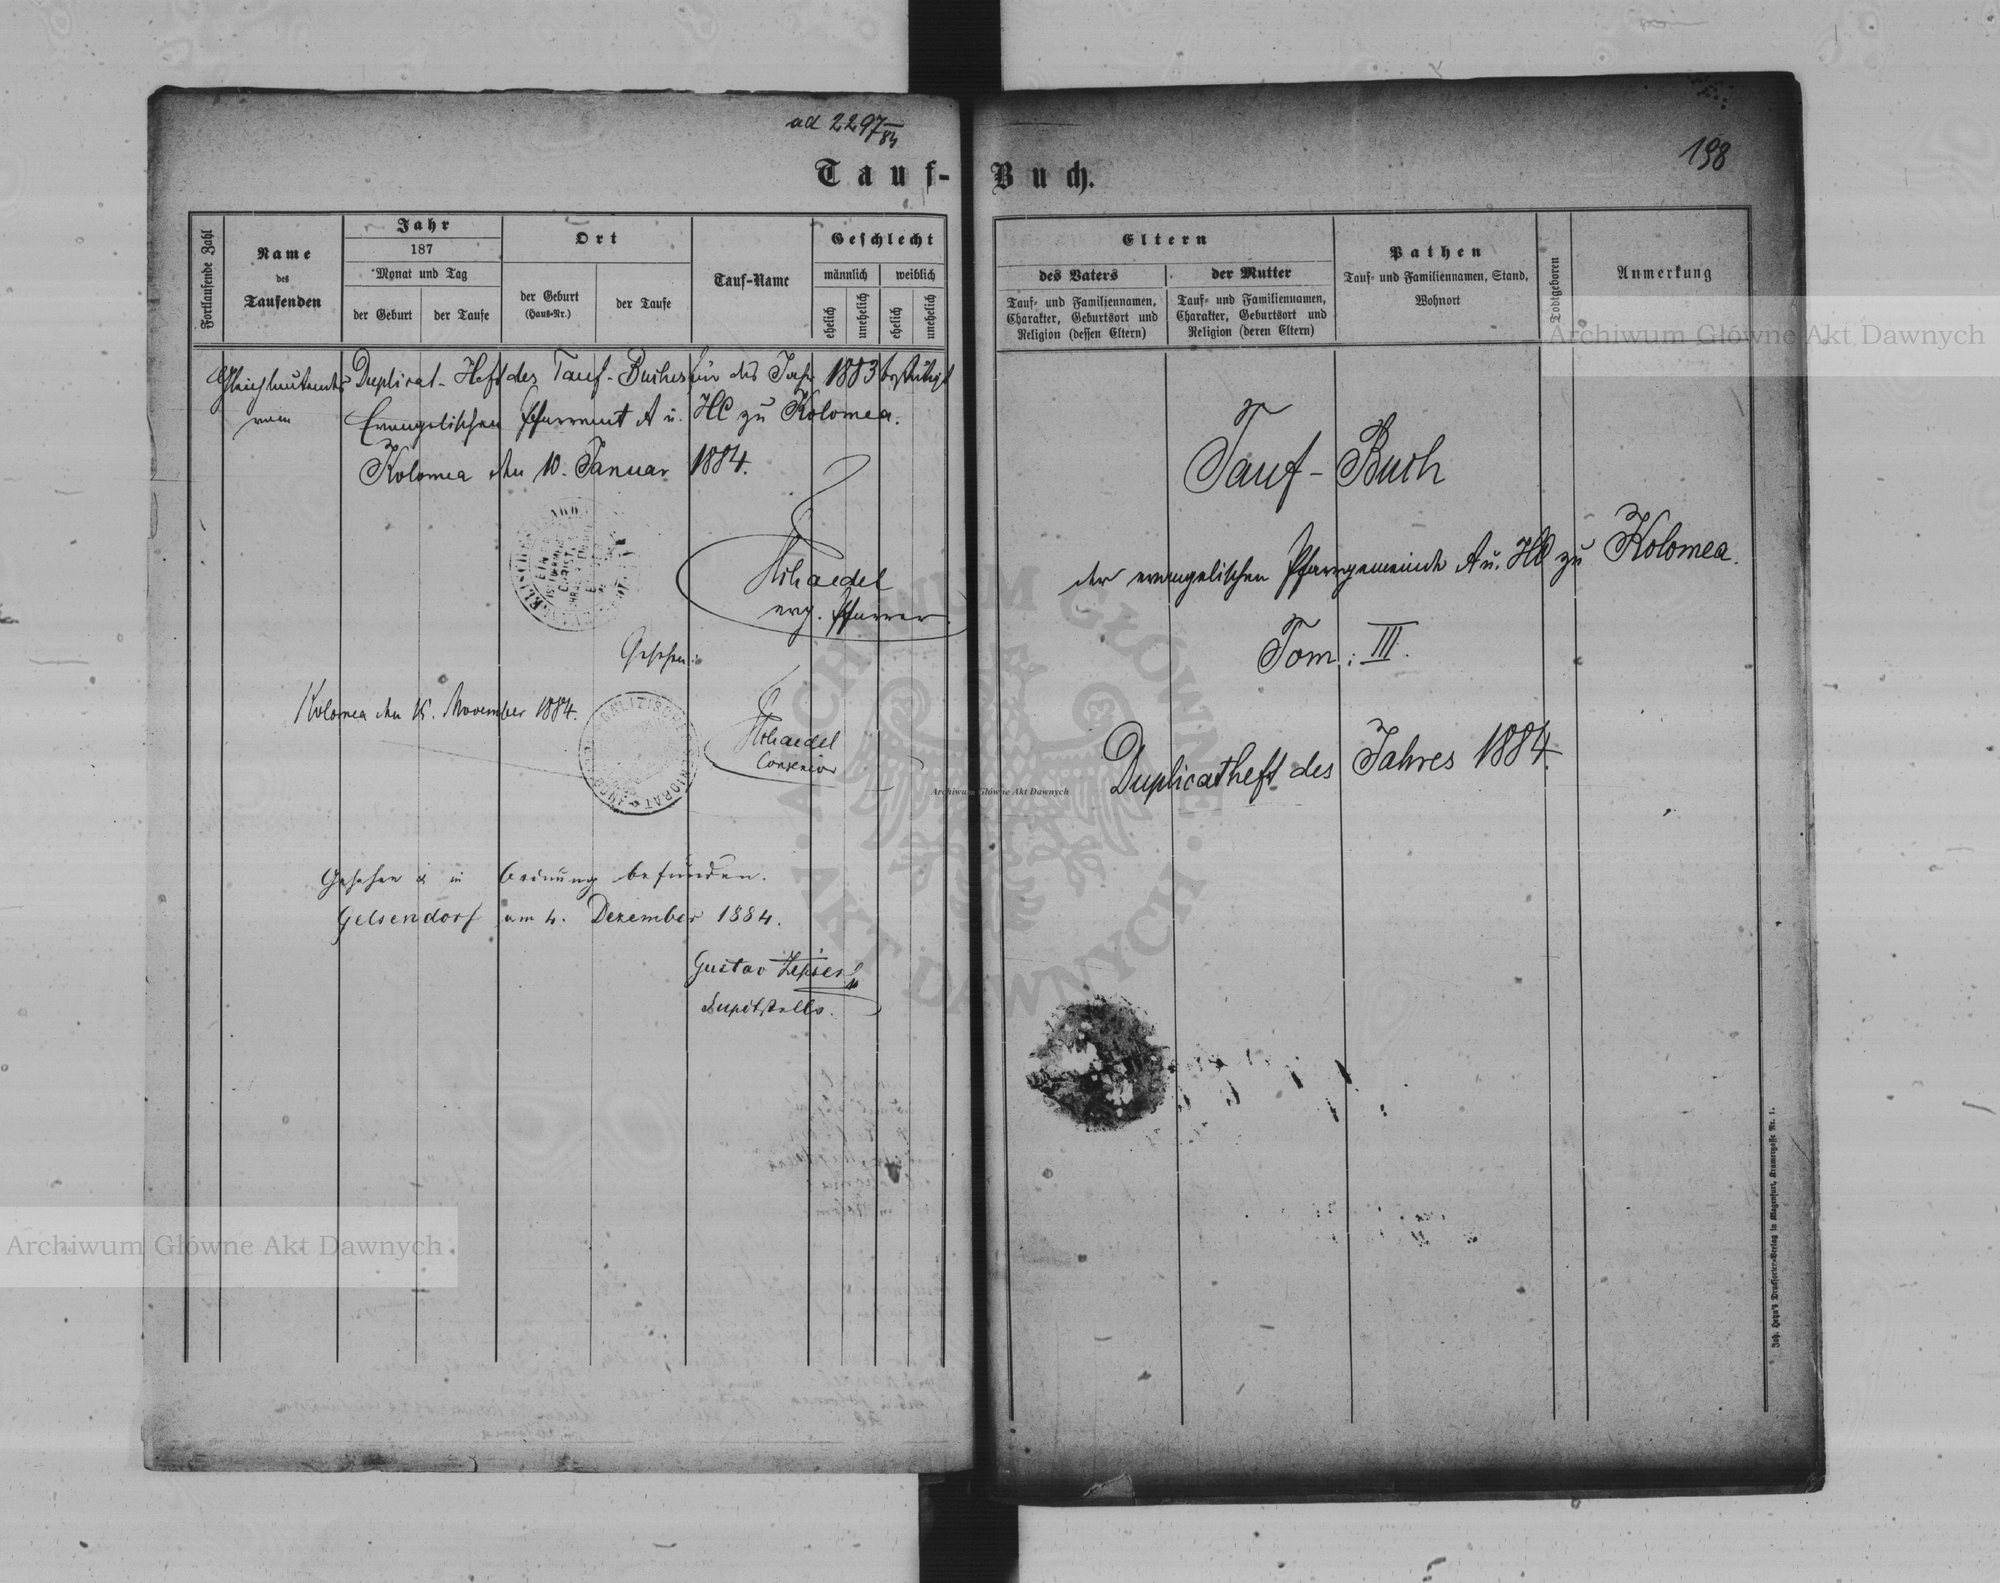 ad 2297/84
198
Tauf-Buch.
Fortlaufende Zahl
Name
des
Taufenden
Jahr
187
Monat und Tag
der Geburt
der Taufe
Ort
der Geburt
(Haus-Nr.)
der Taufe
Tauf-Name
Geschlecht
männlich
weiblich
ehelich
unehelich
ehelich
unehelich
Eltern
des Vaters
Tauf- und Familiennamen,
Charakter, Geburtsort und
Religion (dessen Eltern)
der Mutter
Tauf- und Familiennamen,
Charakter, Geburtsort und
Religion (deren Eltern)
Pathen
Tauf- und Familiennamen, Stand,
Wohnort
Todtgeboren
Anmerkung
Gleichlautendes Duplicat-Heft des Tauf-Buches für das Jahr 1883 bestätigt
vom Evangelischen Pfarramt A u. HC zu Kolomea.
Kolomea den 10. Januar 1884.
evg. Pfarrer.
Gesehen:
Kolomea den 15. November 1884.
Consenior
Gesehen & in Ordnung befunden.
Gelsendorf am 4. Dezember 1884.
Gustav
Tauf-Buch
der evangelischen Pfarrgemeinde A u. HC zu Kolomea.
Tom: III.
Duplicatheft des Jahres 1884.
Joh. Heyn's Drucksorten-Verlag in Klagenfurt, Kramergasse Nr. 1.
Archiwum Główne Akt Dawnych
Archiwum Główne Akt Dawnych
Archiwum Główne Akt Dawnych
ARCHIWUM GŁÓWNE · AKT DAWNYCH ·